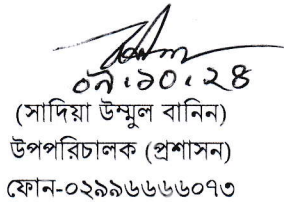 ০৭.১০.২৪
(সাদিয়া উম্মুল বানিন)
উপপরিচালক (প্রশাসন)
ফোন-০২৯৯৬৬৬৬০৭৩